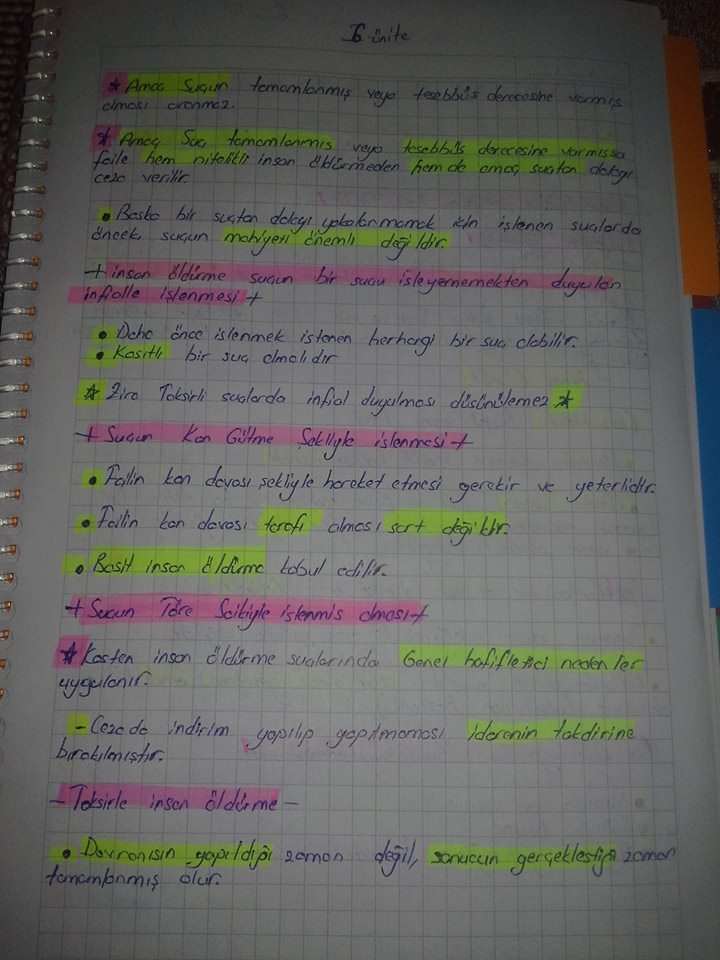 6. ünite
* Amaç Suçun tamamlanmış veya teşebbüs derecesine varmış
olması aranmaz.
* Amaç Suç tamamlanmış veya teşebbüs derecesine varmışsa
faile hem nitelikli insan öldürmeden hem de amaç suçtan dolayı
ceza verilir
• Başka bir suçtan dolayı yakalanmamak için işlenen suçlarda
önceki suçun mahiyeti önemli değildir.
+ insan öldürme suçun bir suçu işleyememekten duyulan
infialle işlenmesi +
• Daha önce işlenmek istenen herhangi bir suç olabilir.
• Kasıtlı bir suç olmalıdır
* Zira Taksirli suçlarda infial duyulması düşünülemez *
+ Suçun Kan Gütme Şekliyle işlenmesi +
• Failin kan davası şekliyle hareket etmesi gerekir ve yeterlidir.
• Failin kan davası tarafı olması şart değildir.
• Basit insan öldürme kabul edilir.
+ Suçun Töre Saikiyle işlenmiş olması +
* Kasten insan öldürme suçlarında Genel hafifletici nedenler
uygulanır.
- Cezada indirim yapılıp yapılmaması idarenin takdirine
bırakılmıştır.
- Taksirle insan öldürme -
• Davranışın yapıldığı zaman değil, sonucun gerçekleştiği zaman
tamamlanmış olur.